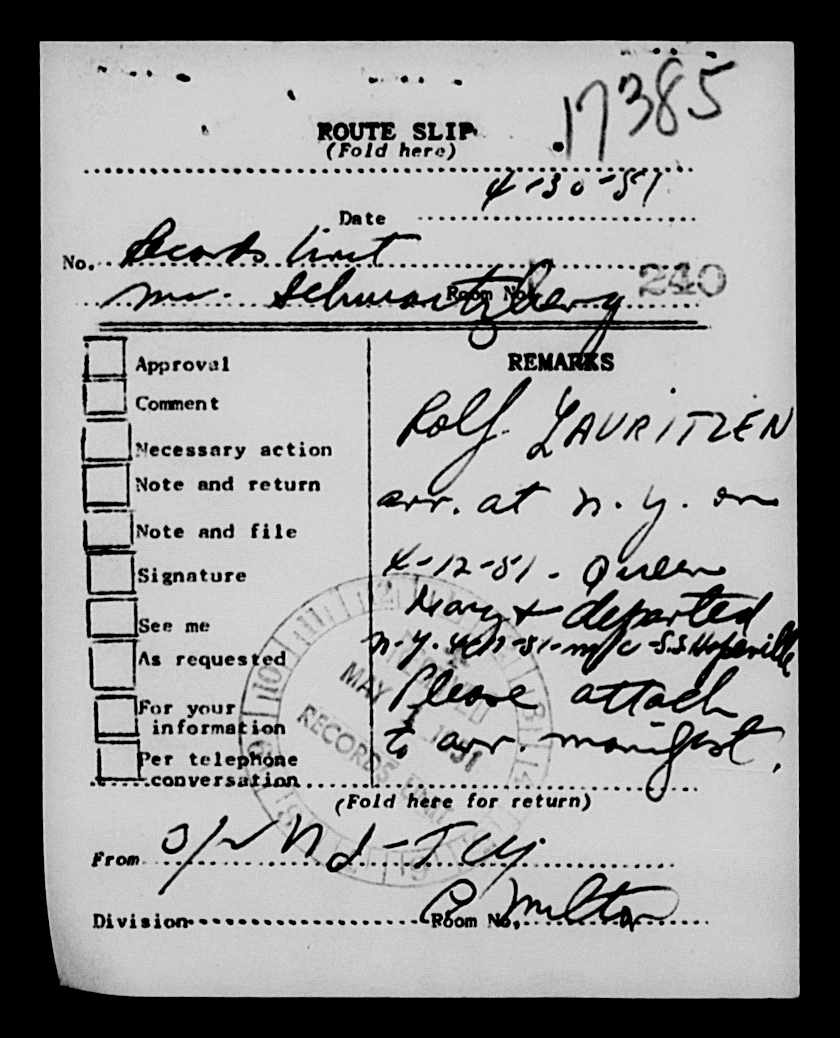 17385
ROUTE SLIP
(Fold here)
4-30-51
Date
No. Records Unit
Mr. Schwartzberg Room No. 240
REMARKS
Approval
Comment
Necessary action
Note and return
Note and file
Signature
See me
As requested
For your
information
Per telephone
conversation
Rolf LAURITZEN
arr. at N.Y. on
4-12-51 - Queen
Mary & departed
N.Y. 4-17-51 - m/c - S.S. Hopeville
Please attach
to arr. manifest.
MAY 1951
RECORDS
(Fold here for return)
From
Division Room No. Milton